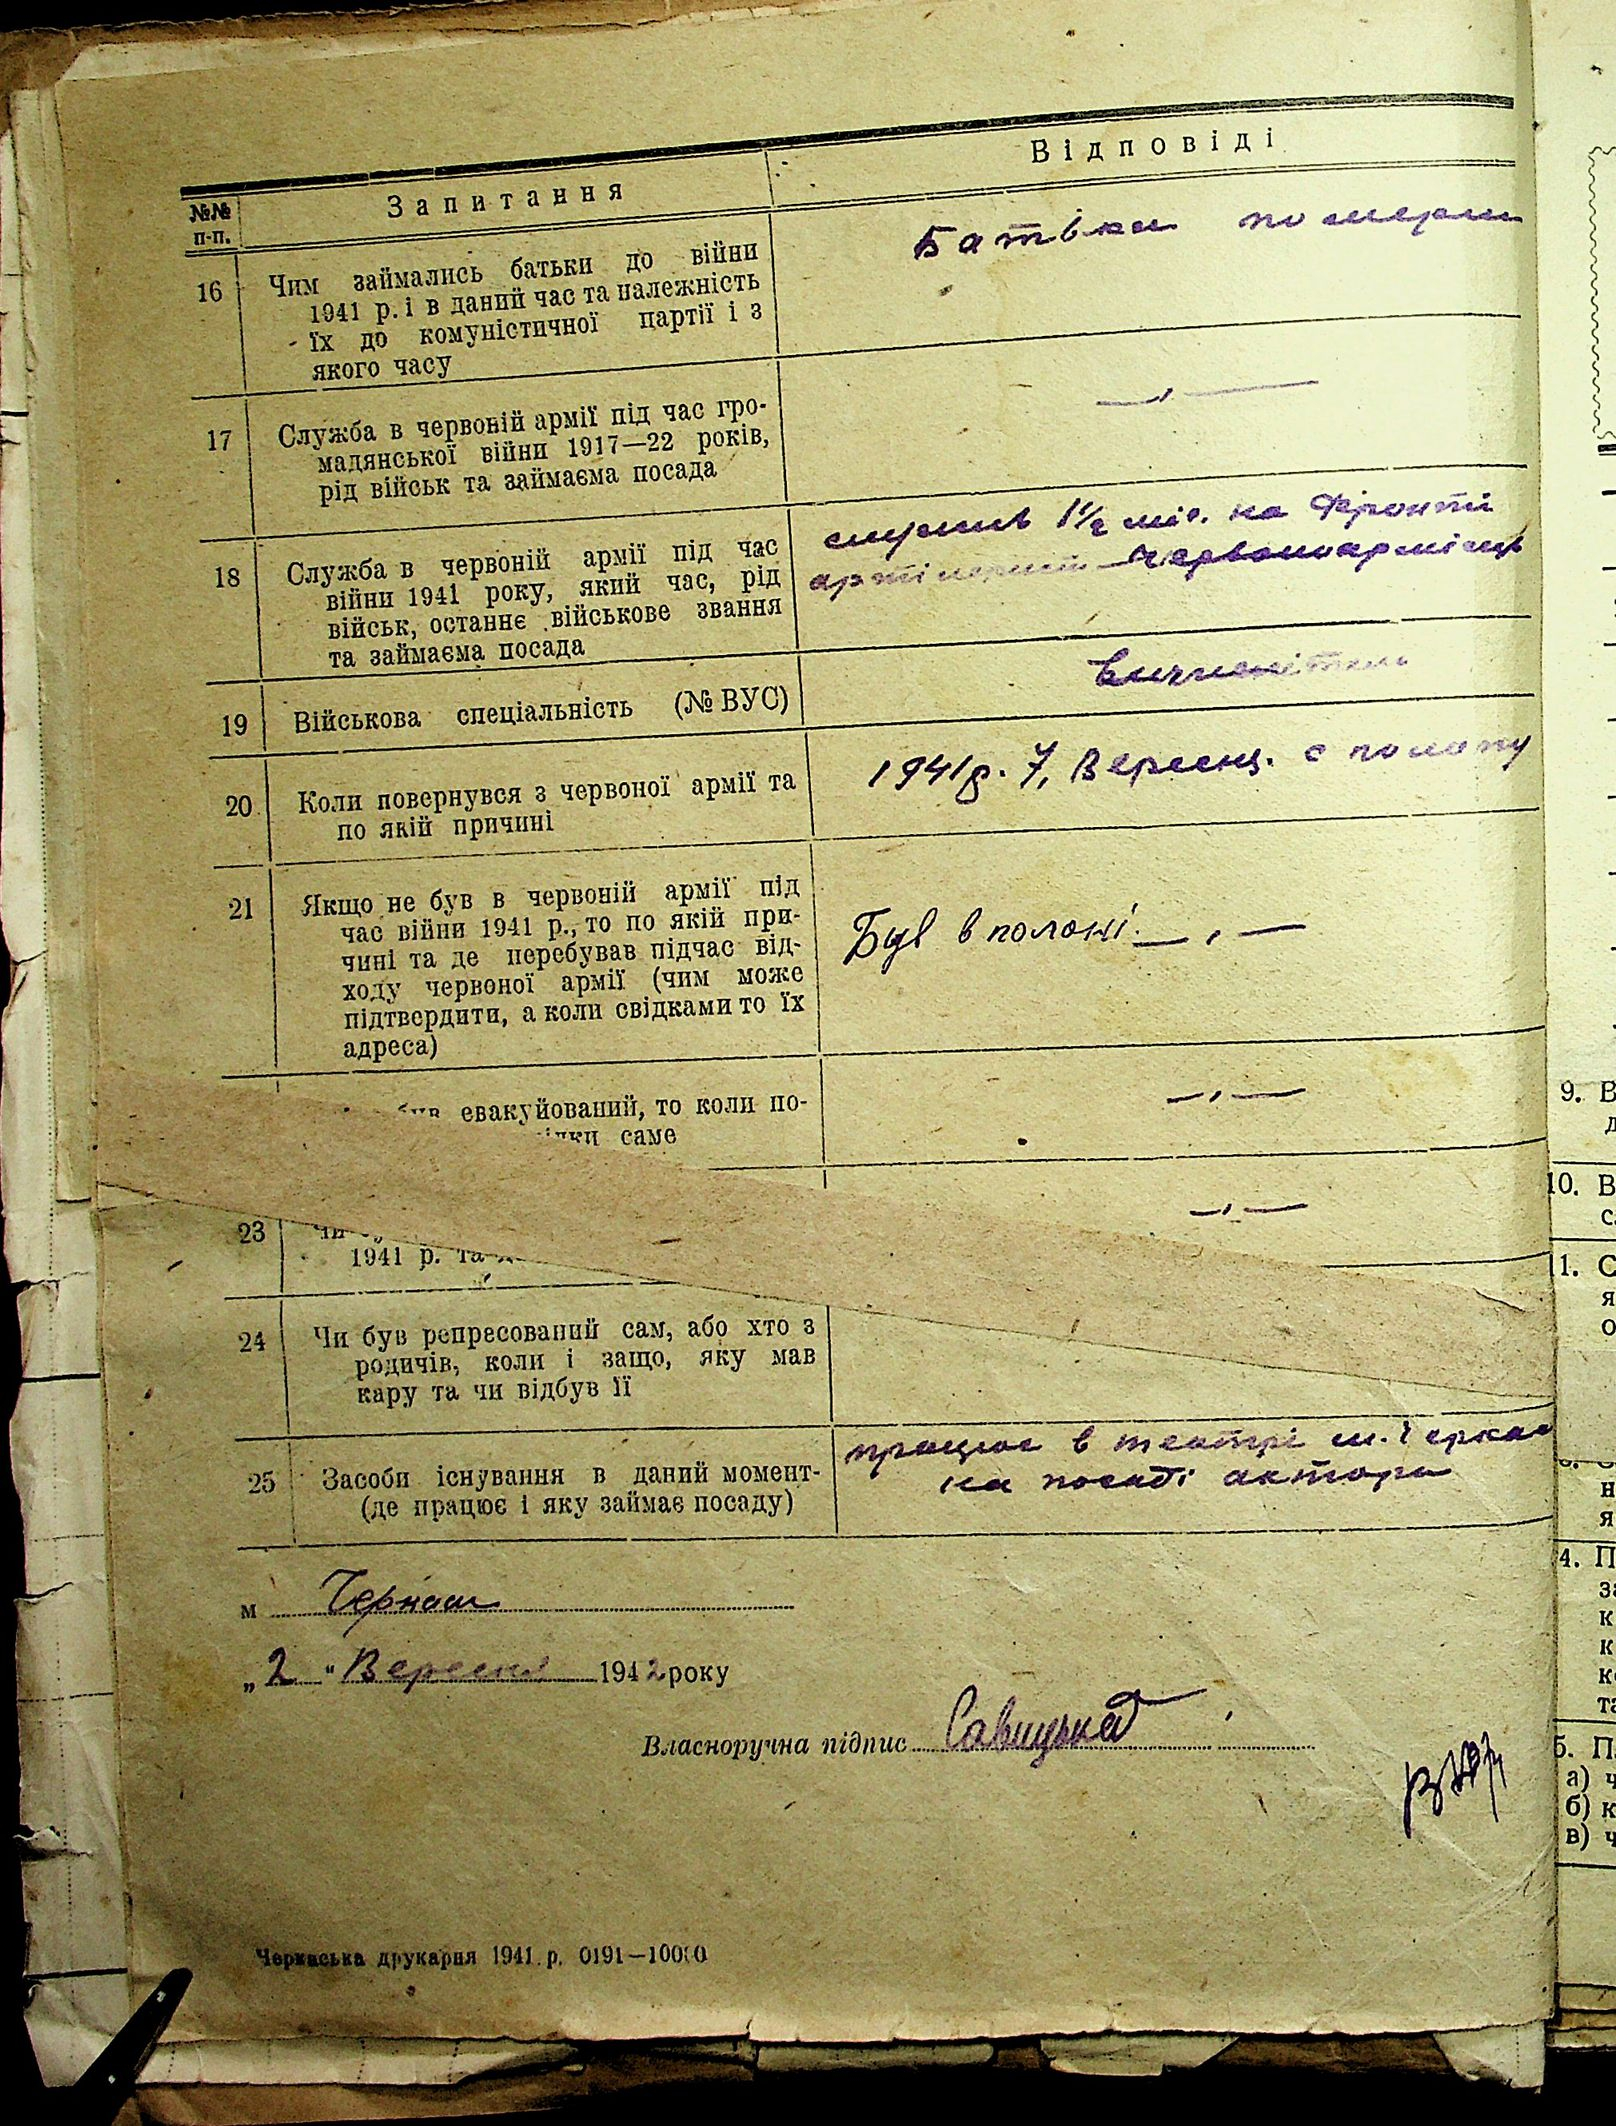 №№ п-п.
Запитання
Відповіді
16
Чим займались батьки до війни
1941 р. і в даний час та належність
їх до комуністичної партії і з
якого часу
Батьки померли
17
Служба в червоній армії під час гро-
мадянської війни 1917—22 років,
рід військ та займаєма посада
— „ —
18
Служба в червоній армії під час
війни 1941 року, який час, рід
військ, останнє військове звання
та займаєма посада
служив 1½ міс. на фронті
артілерист червоноармієць
19
Військова спеціальність (№ ВУС)
20
Коли повернувся з червоної армії та
по якій причині
1941р. 7, Вересня. с полону
21
Якщо не був в червоній армії під
час війни 1941 р., то по якій при-
чині та де перебував підчас від-
ходу червоної армії (чим може
підтвердити, а коли свідками то їх
адреса)
Був в полоні. — „ —
евакуйований, то коли по-
саме
— „ —
23
1941 р. та
— „ —
24
Чи був репресований сам, або хто з
родичів, коли і защо, яку мав
кару та чи відбув її
25
Засоби існування в даний момент-
(де працює і яку займає посаду)
працює в театрі м. Черкас
на посаді актора
м Черкаси
„2" Вересня 1942 року
Власноручна підпис
Черкаська друкарня 1941 р. 0191—10000
9. В
10. В
11. С
я
о
н
я
4. П
за
к
к
та
5. П
а) ч
б) к
в) ч